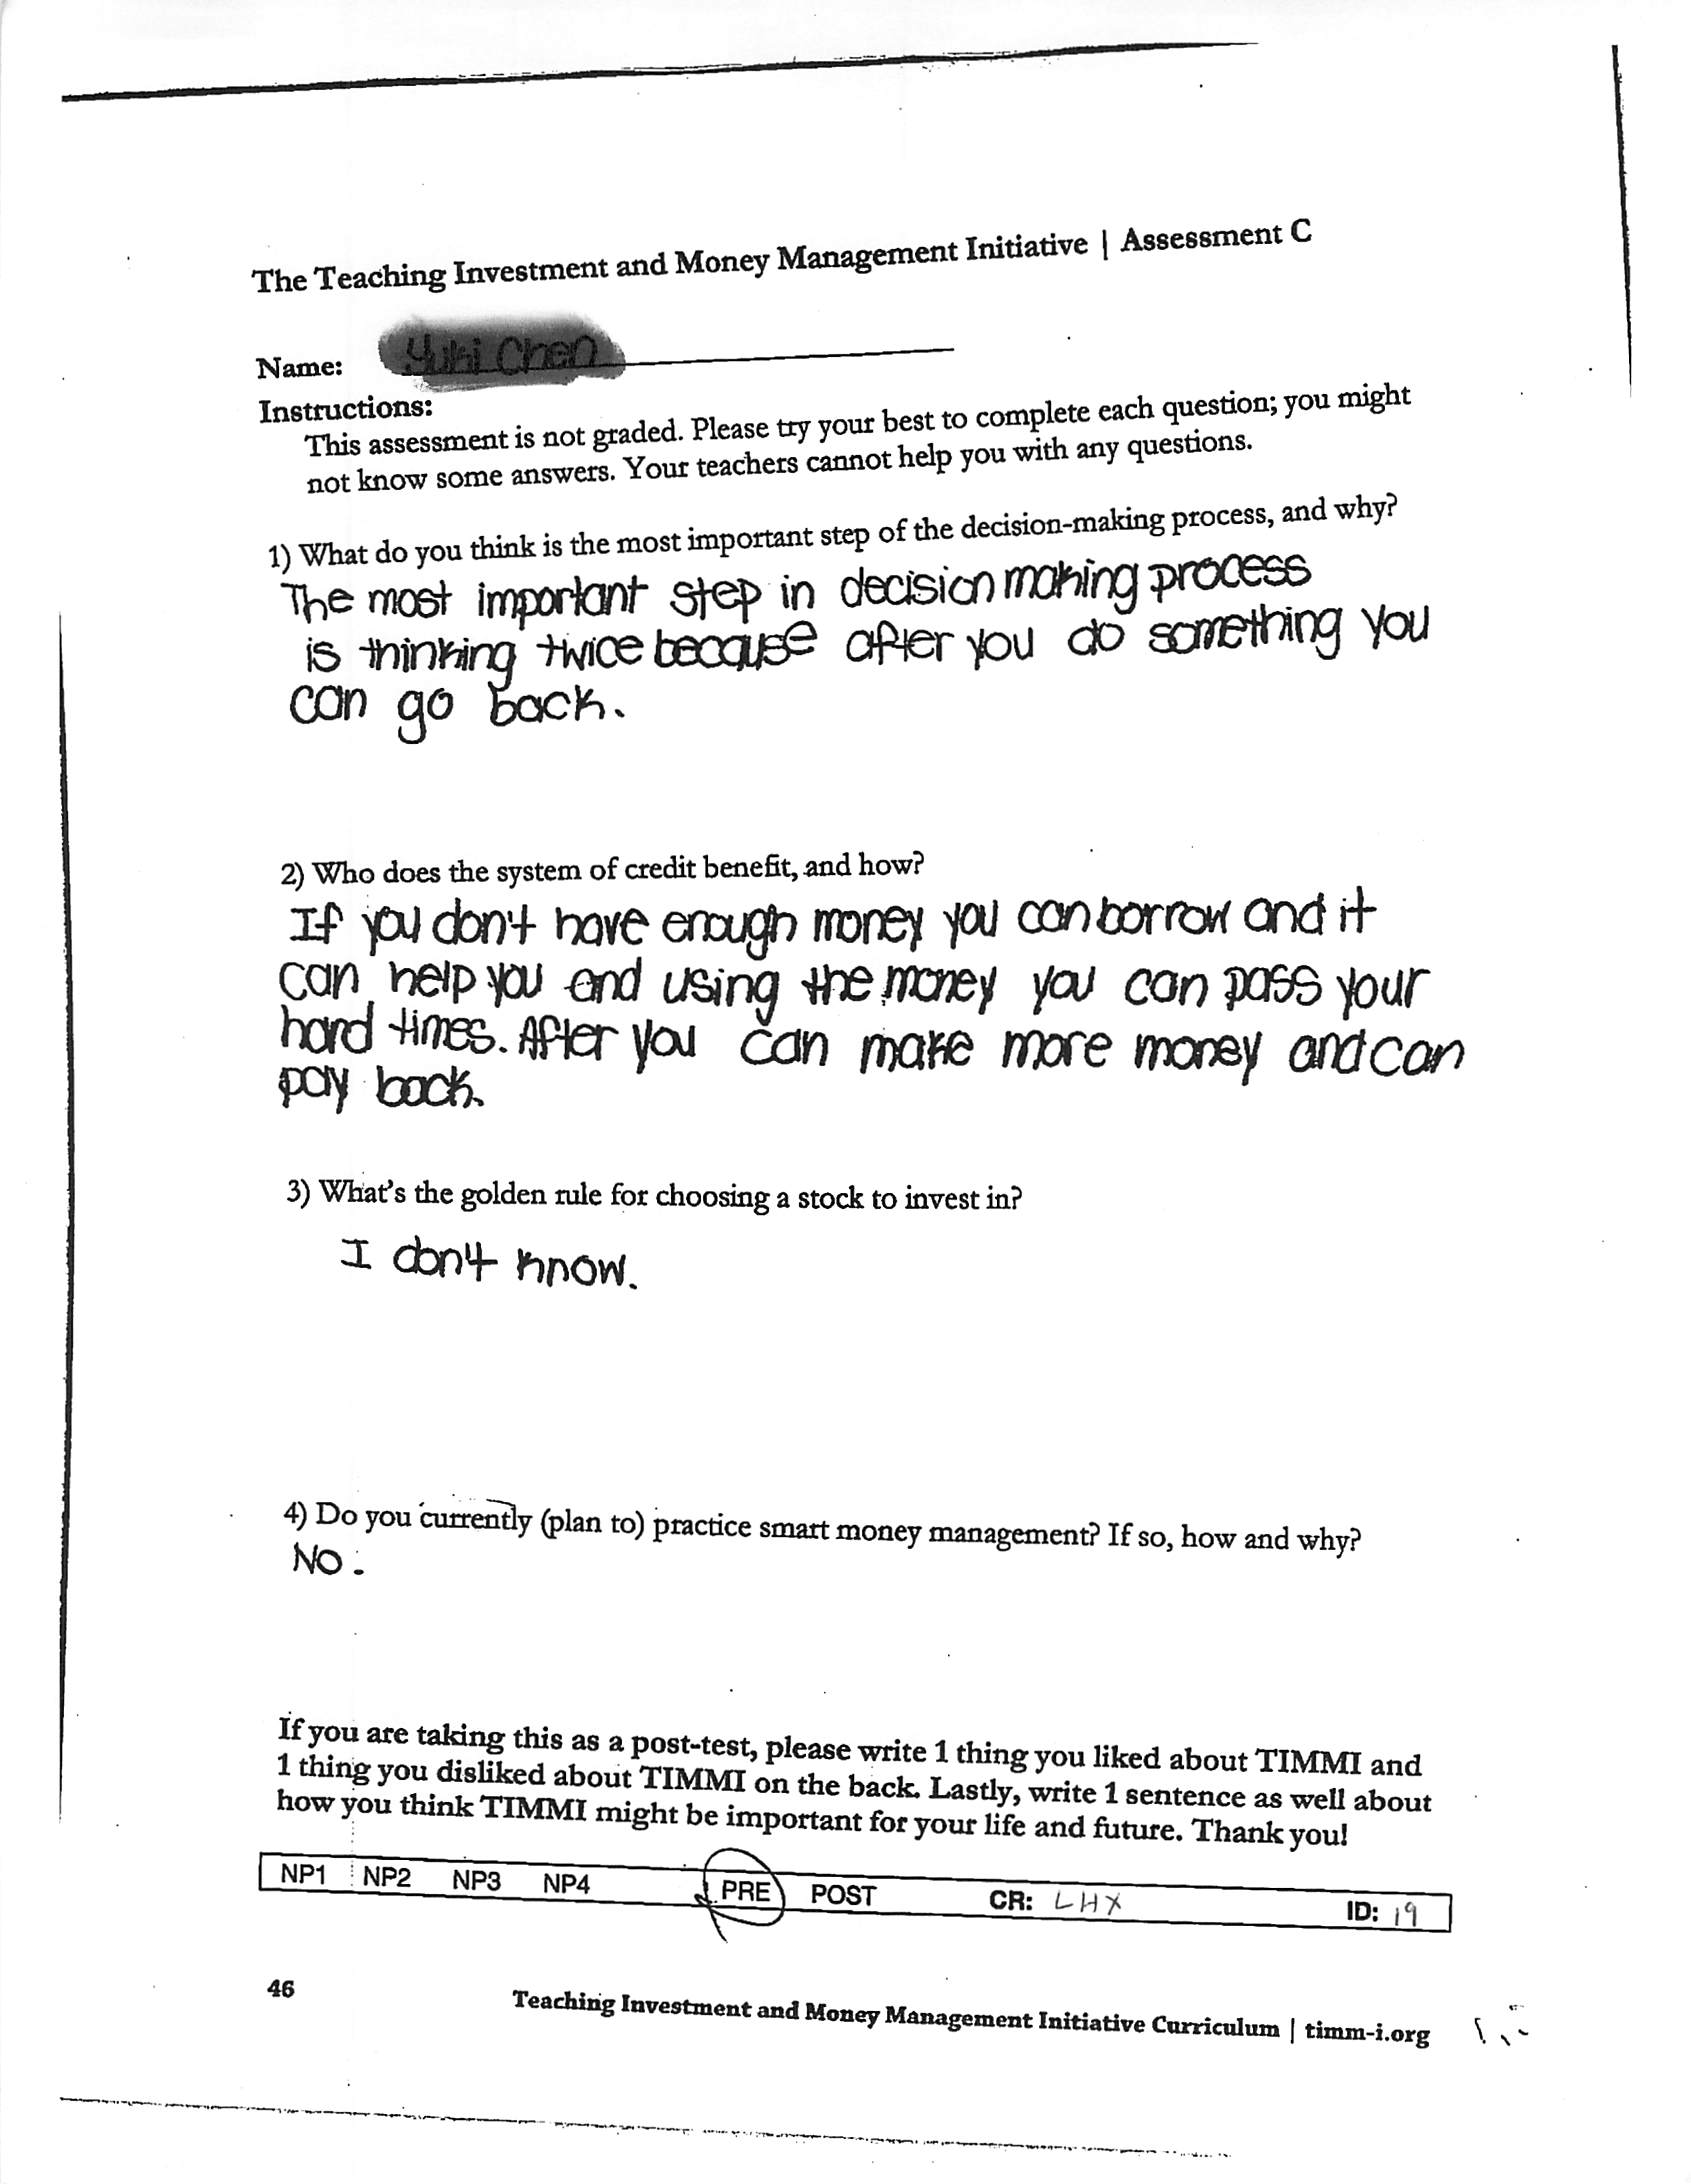 The Teaching Investment and Money Management Initiative | Assessment C
Name:
Instructions:
This assessment is not graded. Please try your best to complete each question; you might
not know some answers. Your teachers cannot help you with any questions.
1) What do you think is the most important step of the decision-making process, and why?
The most important step in decision making process
is thinking twice because after you do something you
can go back.
2) Who does the system of credit benefit, and how?
If you don't have enough money you can borrow and it
can help you and using the money you can pass your
hard times. After you can make more money and can
pay back.
3) What's the golden rule for choosing a stock to invest in?
I don't know.
4) Do you currently (plan to) practice smart money management? If so, how and why?
No.
If you are taking this as a post-test, please write 1 thing you liked about TIMMI and
1 thing you disliked about TIMMI on the back. Lastly, write 1 sentence as well about
how you think TIMMI might be important for your life and future. Thank you!
NP1 NP2 NP3 NP4 PRE POST CR: LHX ID: 19
46 Teaching Investment and Money Management Initiative Curriculum | timm-i.org